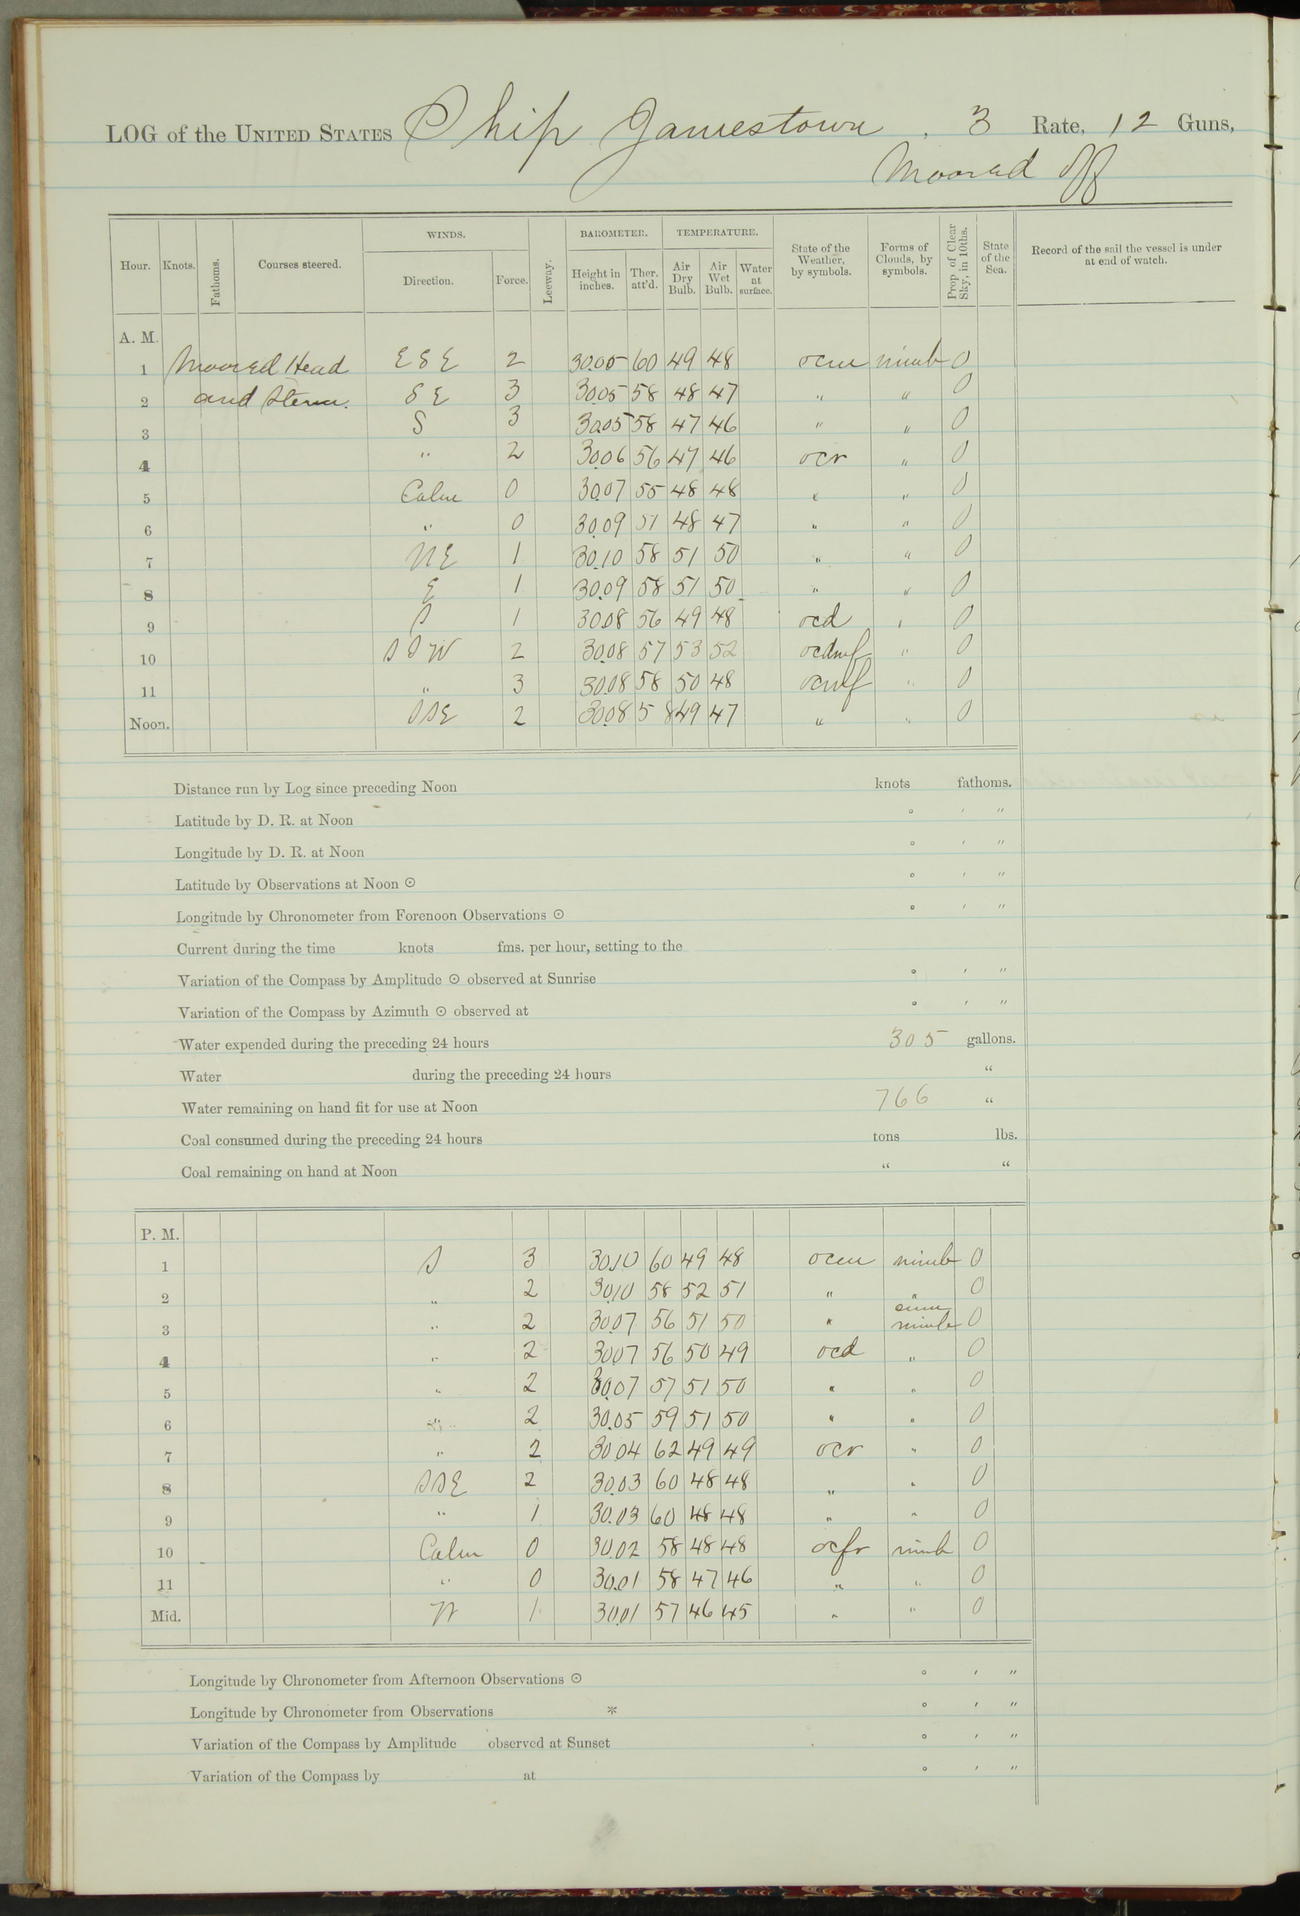 LOG of the UNITED STATES Ship Jamestown, 3 Rate, 12 Guns,
Moored off
Hour. Knots. Fathoms. Courses steered. WINDS. Direction. Force. Leeway. BAROMETER. Height in inches. Ther. att'd. TEMPERATURE. Air Dry Bulb. Air Wet Bulb. Water at surface. State of the Weather, by symbols. Forms of Clouds, by symbols. Prop. of Clear Sky, in 10ths. State of the Sea. Record of the sail the vessel is under at end of watch.
A. M.
1 Moored Head ESE 2 30.05 60 49 48 ocm nimb 0
2 and Stern. SE 3 30.05 58 48 47 " " 0
3 S 3 30.05 58 47 46 " " 0
4 " 2 30.06 56 47 46 ocr " 0
5 Calm 0 30.07 55 48 48 " " 0
6 " 0 30.09 51 48 47 " " 0
7 NE 1 30.10 58 51 50 " " 0
8 E 1 30.09 58 51 50 " " 0
9 S 1 30.08 56 49 48 ocd " 0
10 SSW 2 30.08 57 53 52 ocdmf " 0
11 " 3 30.08 58 50 48 ocmf " 0
Noon. SSE 2 30.08 58 49 47 " " 0
Distance run by Log since preceding Noon knots fathoms.
Latitude by D. R. at Noon ° ′ ″
Longitude by D. R. at Noon ° ′ ″
Latitude by Observations at Noon ☉ ° ′ ″
Longitude by Chronometer from Forenoon Observations ☉ ° ′ ″
Current during the time knots fms. per hour, setting to the
Variation of the Compass by Amplitude ☉ observed at Sunrise ° ′ ″
Variation of the Compass by Azimuth ☉ observed at ° ′ ″
Water expended during the preceding 24 hours 305 gallons.
Water during the preceding 24 hours "
Water remaining on hand fit for use at Noon 766 "
Coal consumed during the preceding 24 hours tons lbs.
Coal remaining on hand at Noon " "
P. M.
1 S 3 30.10 60 49 48 ocm nimb 0
2 " 2 30.10 58 52 51 " " 0
3 " 2 30.07 56 51 50 " cum nimb 0
4 " 2 30.07 56 50 49 ocd " 0
5 " 2 30.07 57 51 50 " " 0
6 " 2 30.05 59 51 50 " " 0
7 " 2 30.04 62 49 49 ocr " 0
8 SSE 2 30.03 60 48 48 " " 0
9 " 1 30.03 60 48 48 " " 0
10 Calm 0 30.02 58 48 48 ocfr nimb 0
11 " 0 30.01 58 47 46 " " 0
Mid. W 1 30.01 57 46 45 " " 0
Longitude by Chronometer from Afternoon Observations ☉ ° ′ ″
Longitude by Chronometer from Observations * ° ′ ″
Variation of the Compass by Amplitude observed at Sunset ° ′ ″
Variation of the Compass by at ° ′ ″